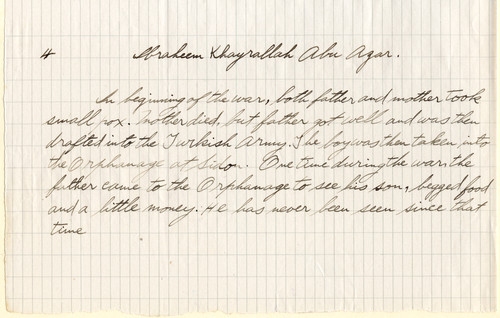 4 Ibraheem Khayrallah Abu Azar.
In beginning of the war, both father and mother took
small pox. Mother died, but father got well and was then
drafted into the Turkish Army. The boy was then taken into
the Orphanage at Sidon. One time during the war, the
father came to the Orphanage to see his son, begged food
and a little money. He has never been seen since that
time